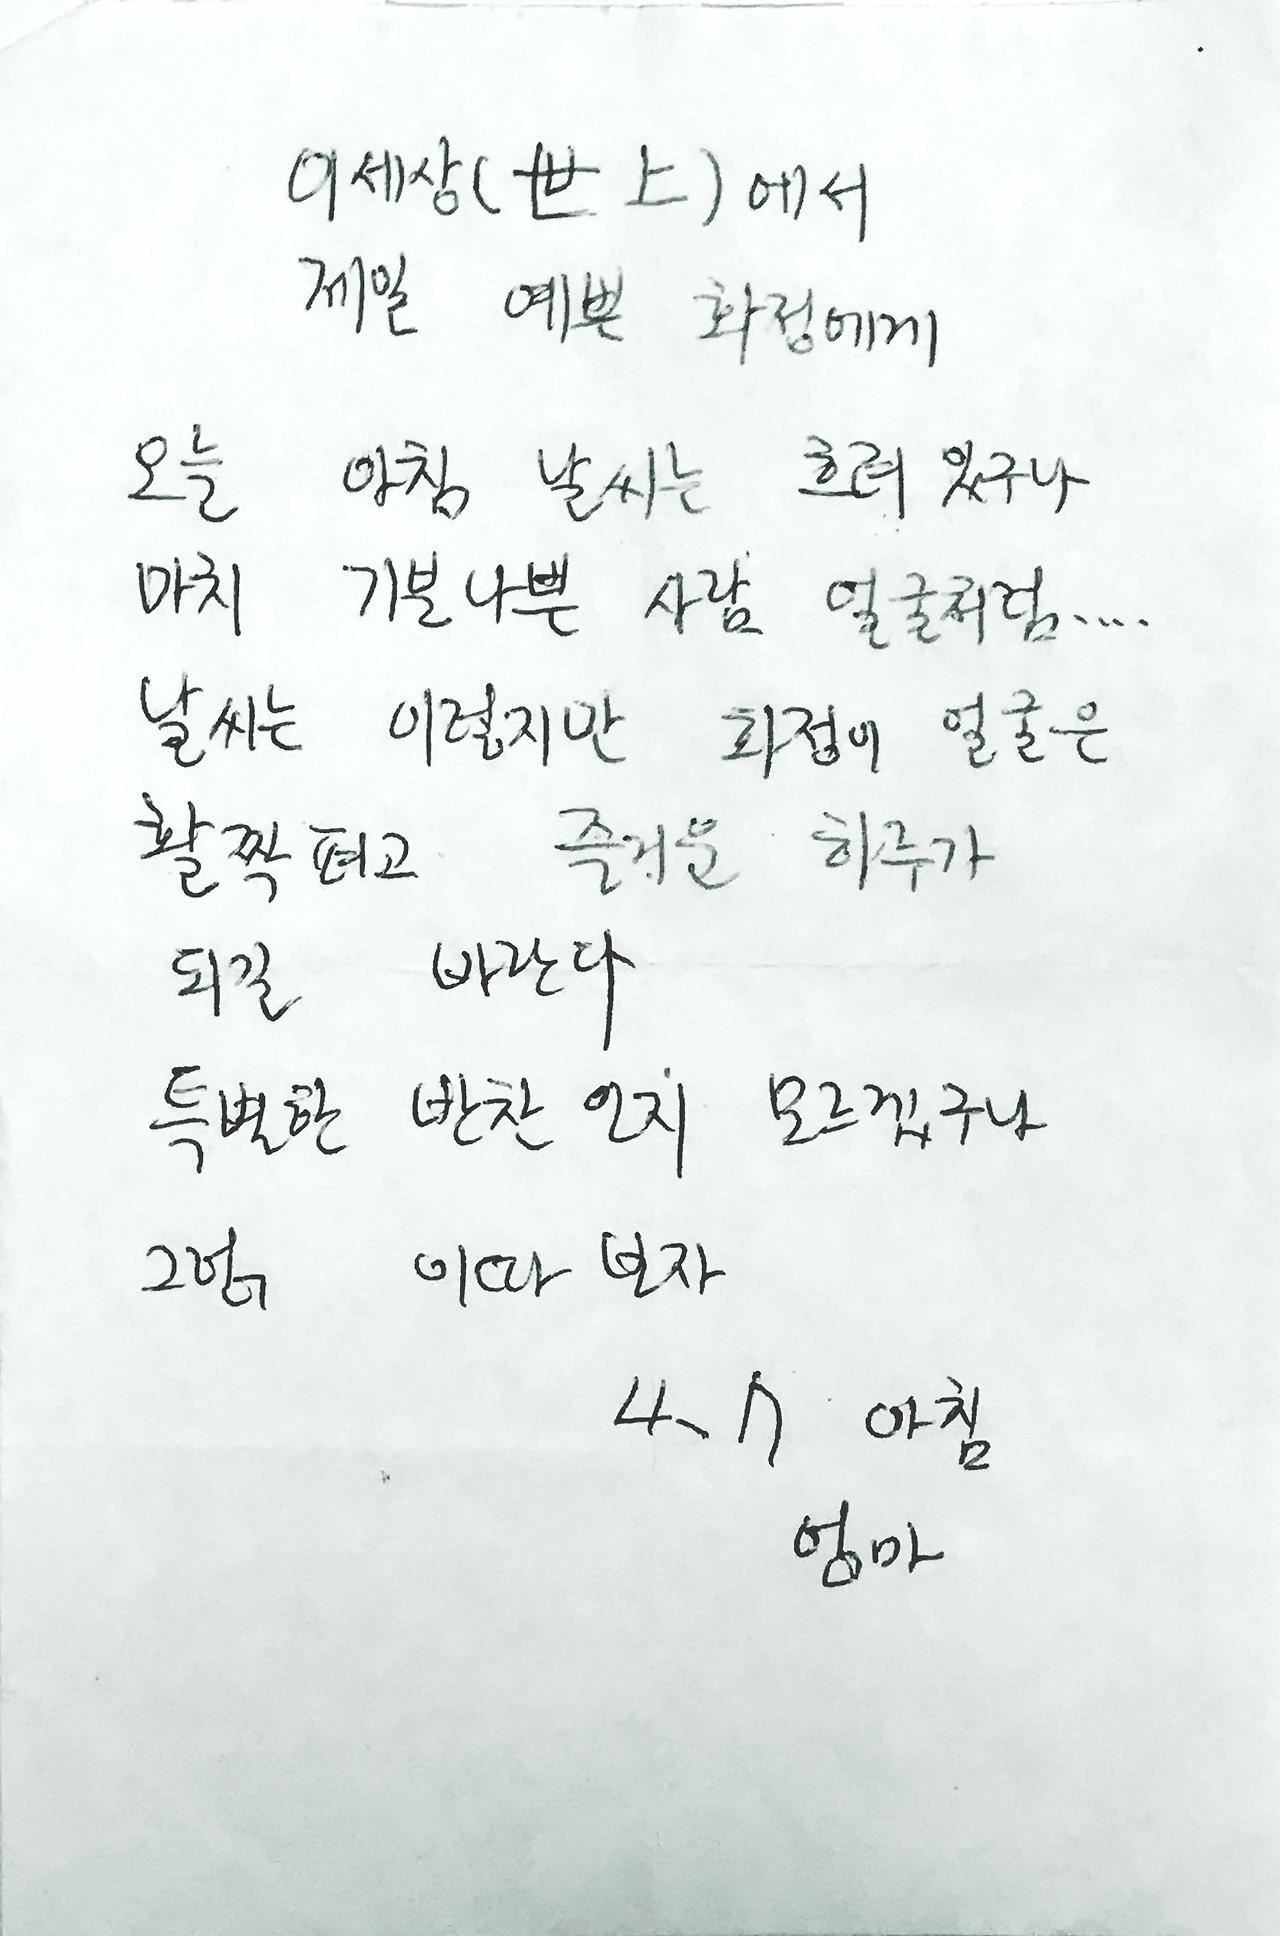 이세상(世上)에서
제일 예쁜 화정에게
오늘 아침 날씨는 흐려 있구나
마치 기분나쁜 사람 얼굴처럼....
날씨는 이렇지만 화정이 얼굴은
활짝펴고 즐거운 하루가
되길 바란다
특별한 반찬 인지 모르겠구나
그럼 이따 보자
4. 7 아침
엄마